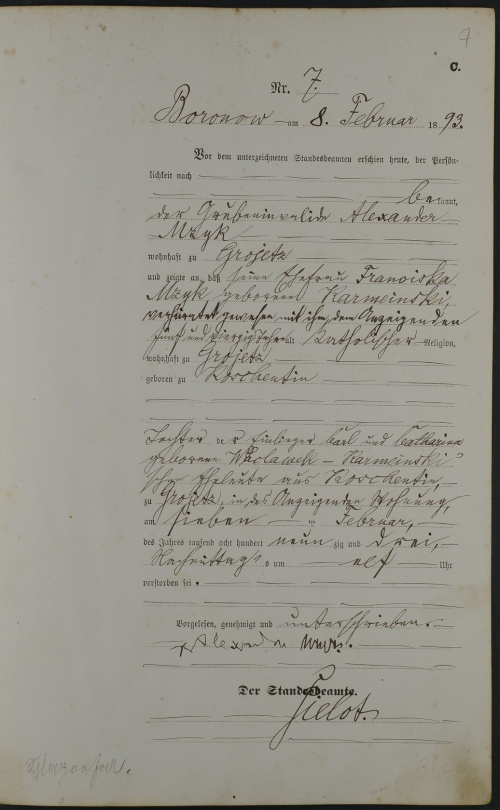 7
C.
Nr. 7.
Boronow am 8. Februar 1893.
Vor dem unterzeichneten Standesbeamten erschien heute, der Persön-
lichkeit nach
bekannt,
der Grubeninvalide Alexander
Mzyk
wohnhaft zu Grojetz
und zeigte an, daß seine Ehefrau Franciska
Mzyk geborene Karmeinski,
verheiratet gewesen mit ihm, den Anzeigenden
fünf und vierzig Jahre alt, Katholischer Religion,
wohnhaft zu Grojetz
geboren zu Koschentin
Tochter der Einlieger Carl und Catharina
geborene Waclawek - Karmeinski'
schen Eheleute aus Koschentin
zu Grojetz, in des Anzeigenden Wohnung,
am sieben ten Februar,
des Jahres tausend acht hundert neunzig und drei,
Nachmittags um elf Uhr
verstorben sei.
Vorgelesen, genehmigt und unterschrieben.
Alexander
Der Standesbeamte.
Gielot.